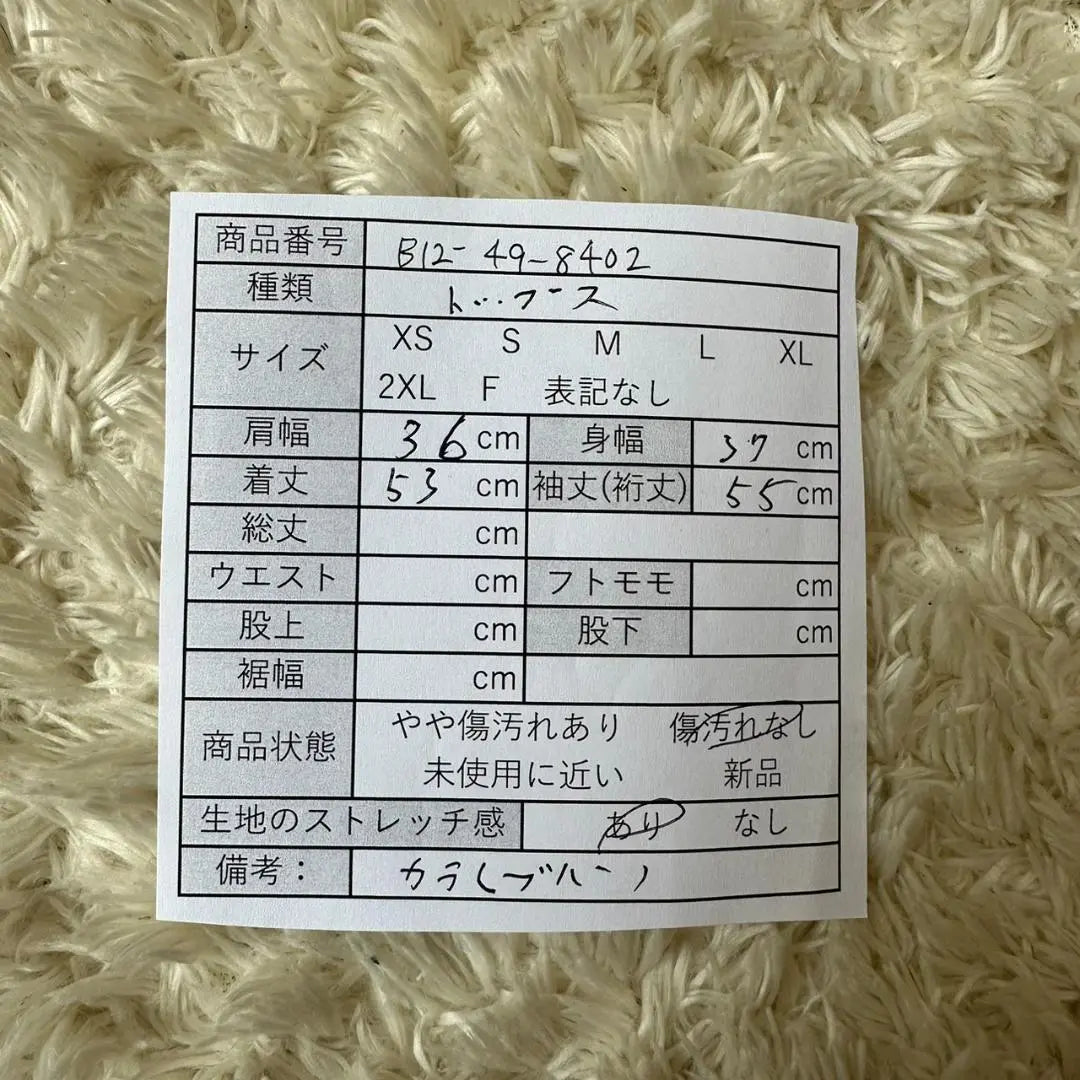 商品番号 B12-49-8402
種類 トップス
サイズ XS S M L XL
2XL F 表記なし
肩幅 36 cm 身幅 37 cm
着丈 53 cm 袖丈(裄丈) 55 cm
総丈 cm
ウエスト cm フトモモ cm
股上 cm 股下 cm
裾幅 cm
商品状態 やや傷汚れあり 傷汚れなし
未使用に近い 新品
生地のストレッチ感 あり なし
備考： カラ(ブルー)